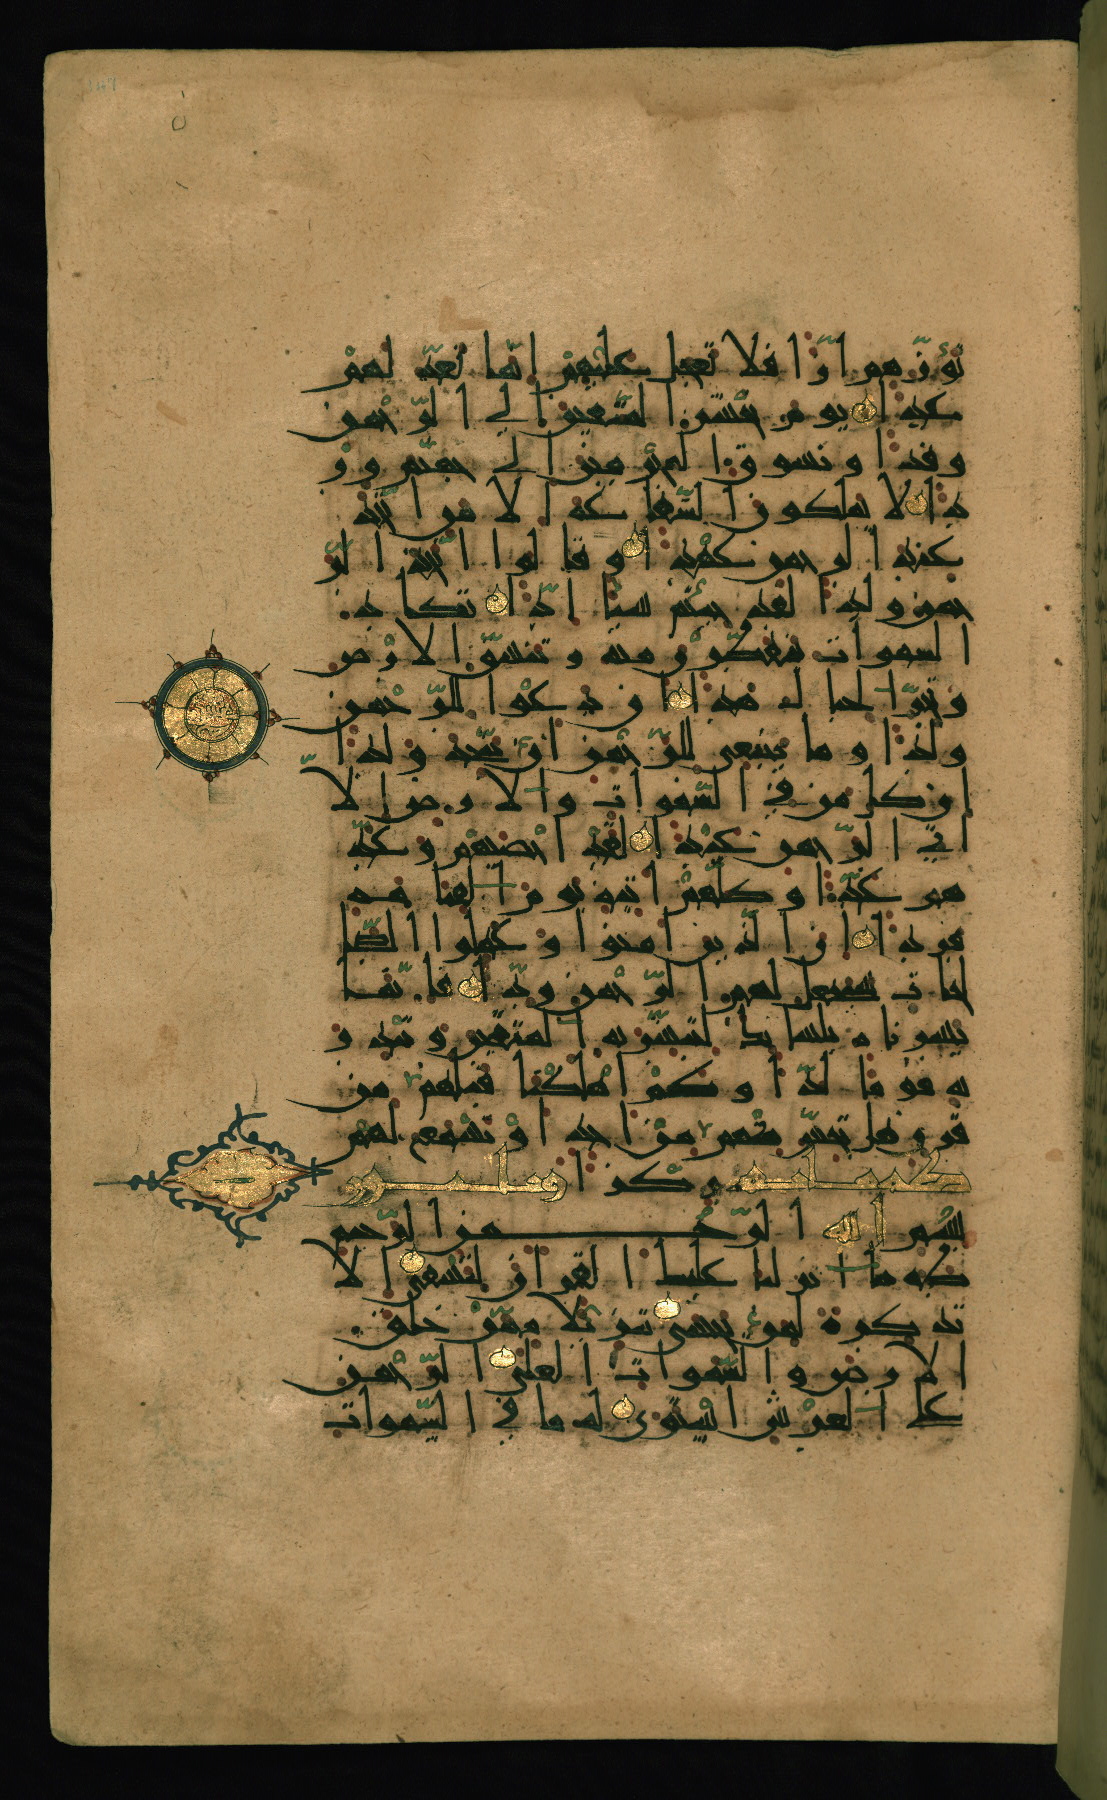 تؤزهم ازا فلا تعجل عليهم انما نعد لهم
عدا يوم نحشر المتقين الى الرحمن
وفدا ونسوق المجرمين الى جهنم ور
دا لا يملكون الشفعة الا من اتخذ
عند الرحمن عهدا وقالوا اتخذ الر
حمن ولدا لقد جئتم شيئا ادا تكاد
السموات يتفطرن منه وتنشق الارض
وتخر الجبال هدا ان دعوا للرحمن
ولدا وما ينبغي للرحمن ان يتخذ ولدا
ان كل من في السموات والارض الا
اتي الرحمن عبدا لقد احصيهم وعد
هم عدا وكلهم اتيه يوم القيمة
فردا ان الذين امنوا وعملوا الصا
لحات سيجعل لهم الرحمن ودا فانما
يسرناه بلسانك لتبشر به المتقين وتنذر
به قوما لدا وكم اهلكنا قبلهم من
قرن هل تحس منهم من احد او تسمع لهم
ركزا
بسم الله الرحمن الرحيم
طه ما انزلنا عليك القران لتشقى الا
تذكرة لمن يخشى تنزيلا ممن خلق
الارض والسموات العلى الرحمن
على العرش استوى له ما في السموات